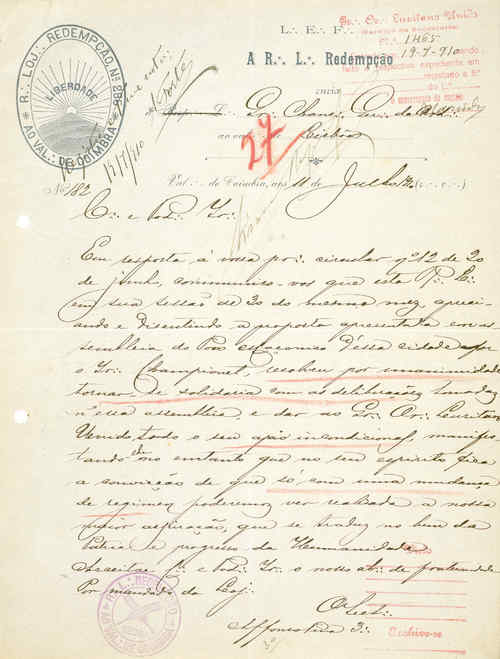 R∴ LOJ∴ REDEMPÇÃO, Nº 286
LIBERDADE
AO VAL∴ DE COIMBRA
Gr∴ Or∴ Lusitano Unido
Nº 1465
19-7-910
L∴ E∴ F∴
A R∴ L∴ Redempção
envia
ao
Lisboa
27
17/7/910
Nº 182
Val∴ de Coimbra, aos 11 de Julho
C∴ e Pod∴ Ir∴
Em resposta á vossa pr∴ circular nº 12 de 20
de junho, communico-vos que esta R∴ L∴
em sua sessão de 20 do mesmo mez, apreci-
ando e discutindo a proposta apresentada em as-
sembleia do Povo maçonico d'essa cidade por
o Ir∴ Championet, resolveu por unanimidade
tornar-se solidaria com as deliberações tomadas
n'essa assembleia e dar ao Gr∴ Or∴ Lusitano
Unido todo o seu apoio incondicional, manifes-
tando no emtanto que no seu espirito fica
a convicção de que só com uma mudança
de regimen poderemos ver realisada a nossa
maior aspiração, que se traduz no bem da
Patria e progresso da Humanidade.
Acceitae C∴ e Pod∴ Ir∴ o nosso ab∴ de fraternidade
Por mandado da Loj∴
O Secr∴
3∴
Archive-se